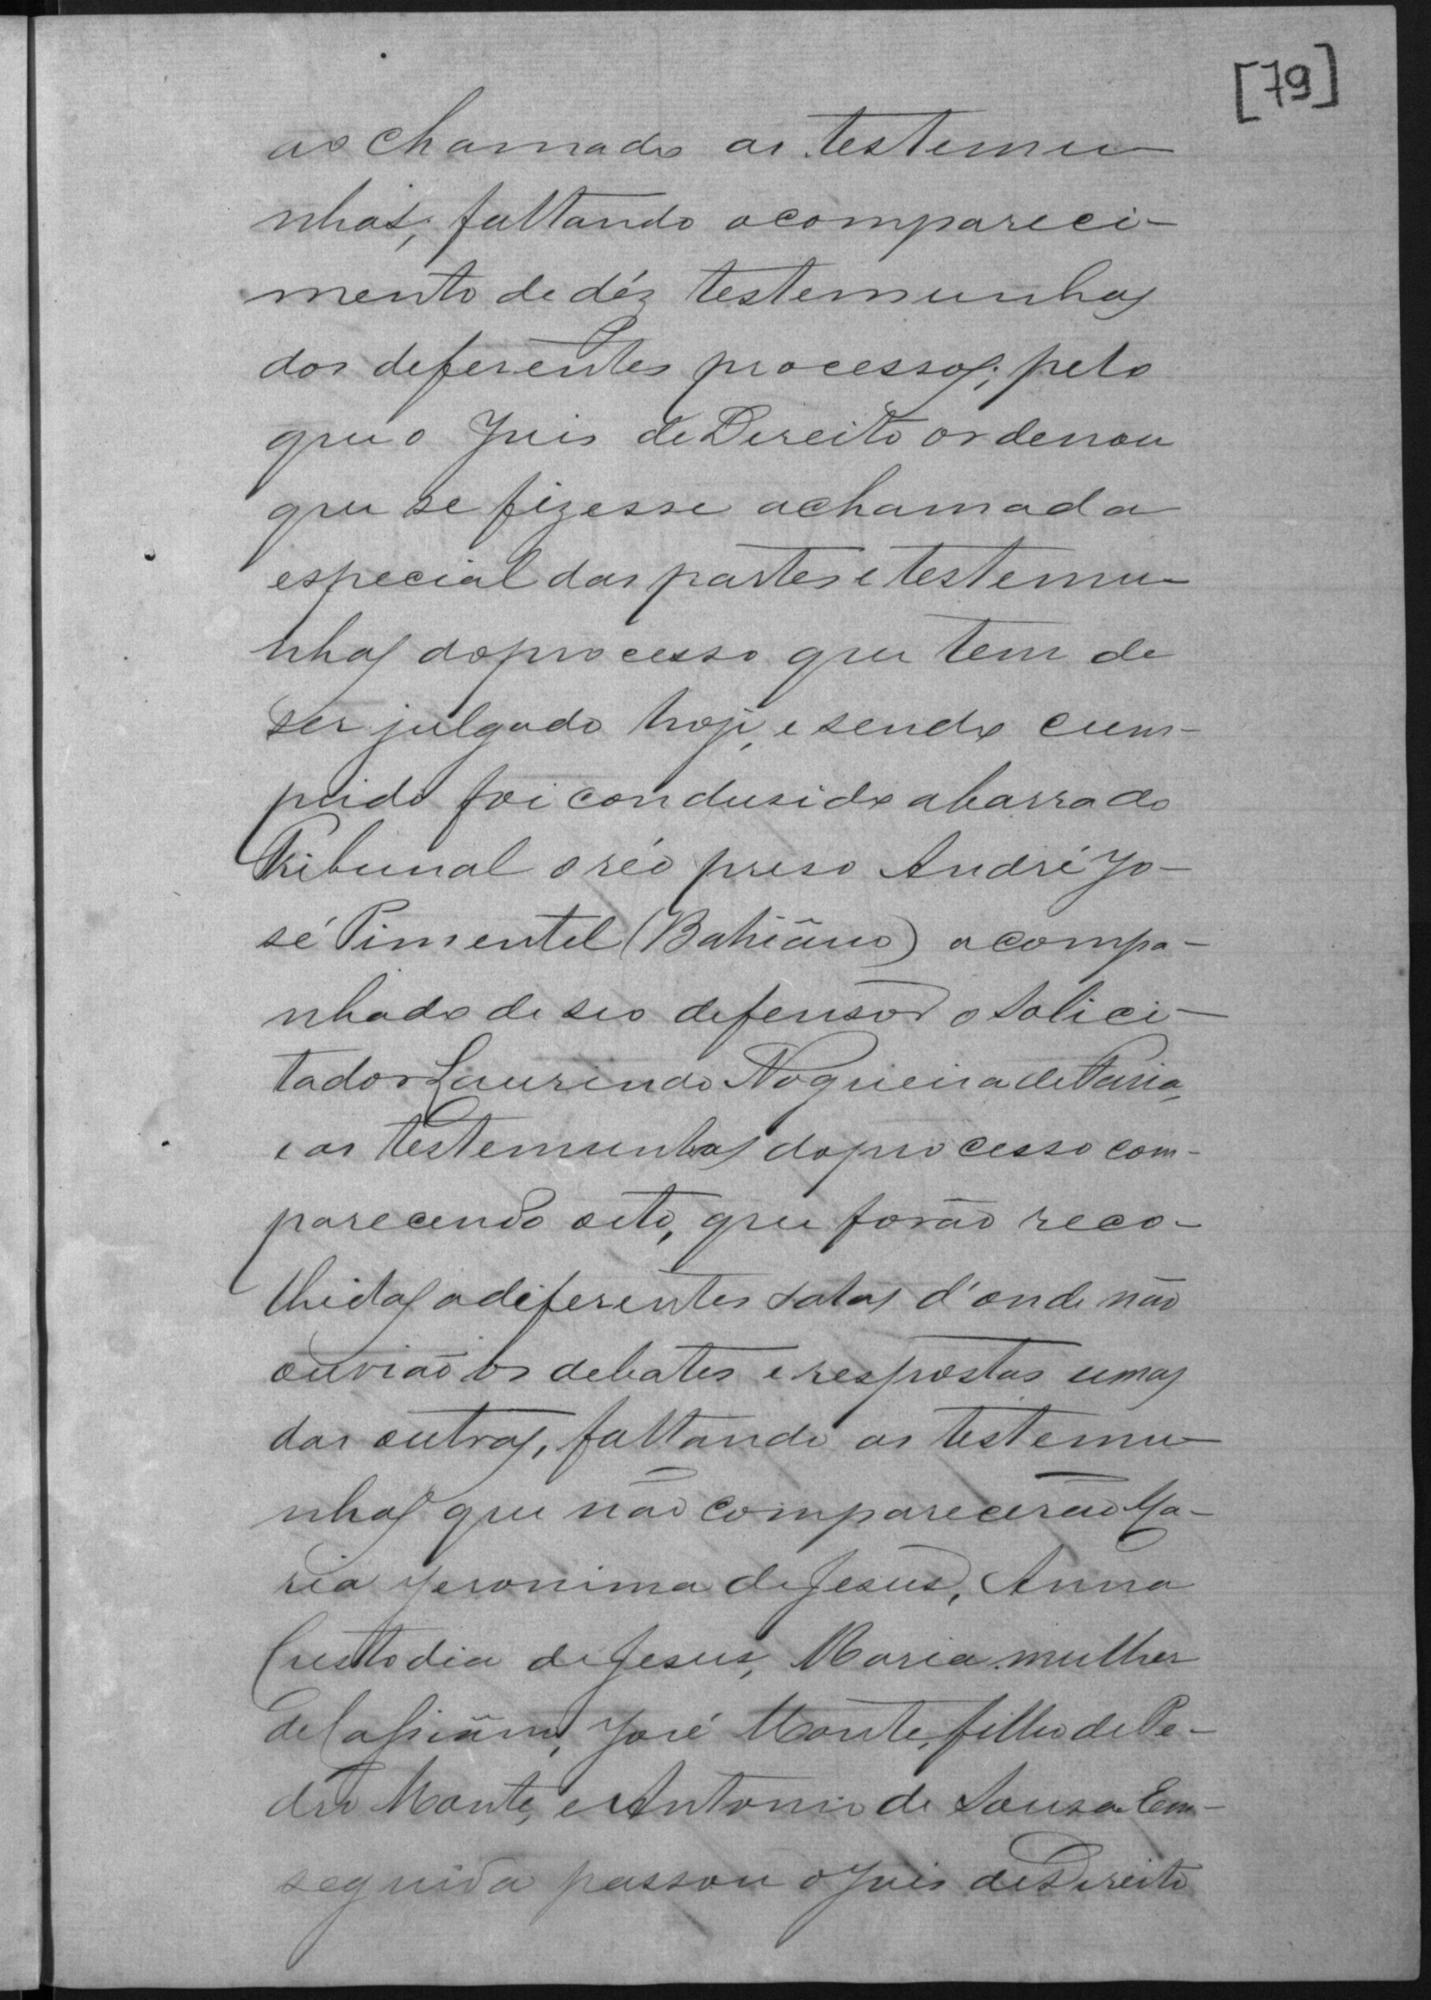 [79]
ao chamado as testemu
nhas; faltando o compareci-
mento de déz testemunhas
dos deferentes processos; pelo
que o Juis de Direito ordenou
que se fizesse a chamada
especial das partes e testemu-
nhas do processo que tem de
ser julgado hoje, e sendo cum-
prido foi condusido a barra do
Tribunal o réo preso André Jo-
sé Pimentel (Bahiãno) acompa-
nhado de seo defensor o Solici-
tador Laurindo Nogueira de Paria,
e as testemunhas do processo com-
parecendo oito, que forão reco-
lhidas a diferentes salas d'onde não
ouvião os debates e respostas umas
das outras, faltando as testemu-
nhas que não comparecerão Ma-
ria Jeronima de Jesus, Anna
Custodia de Jesus, Maria mulher
de Cassiãno, José Monte, filho de Pe-
dro Monte, e Antonio de Sousa. Em-
seguida passou o Juis de Direito